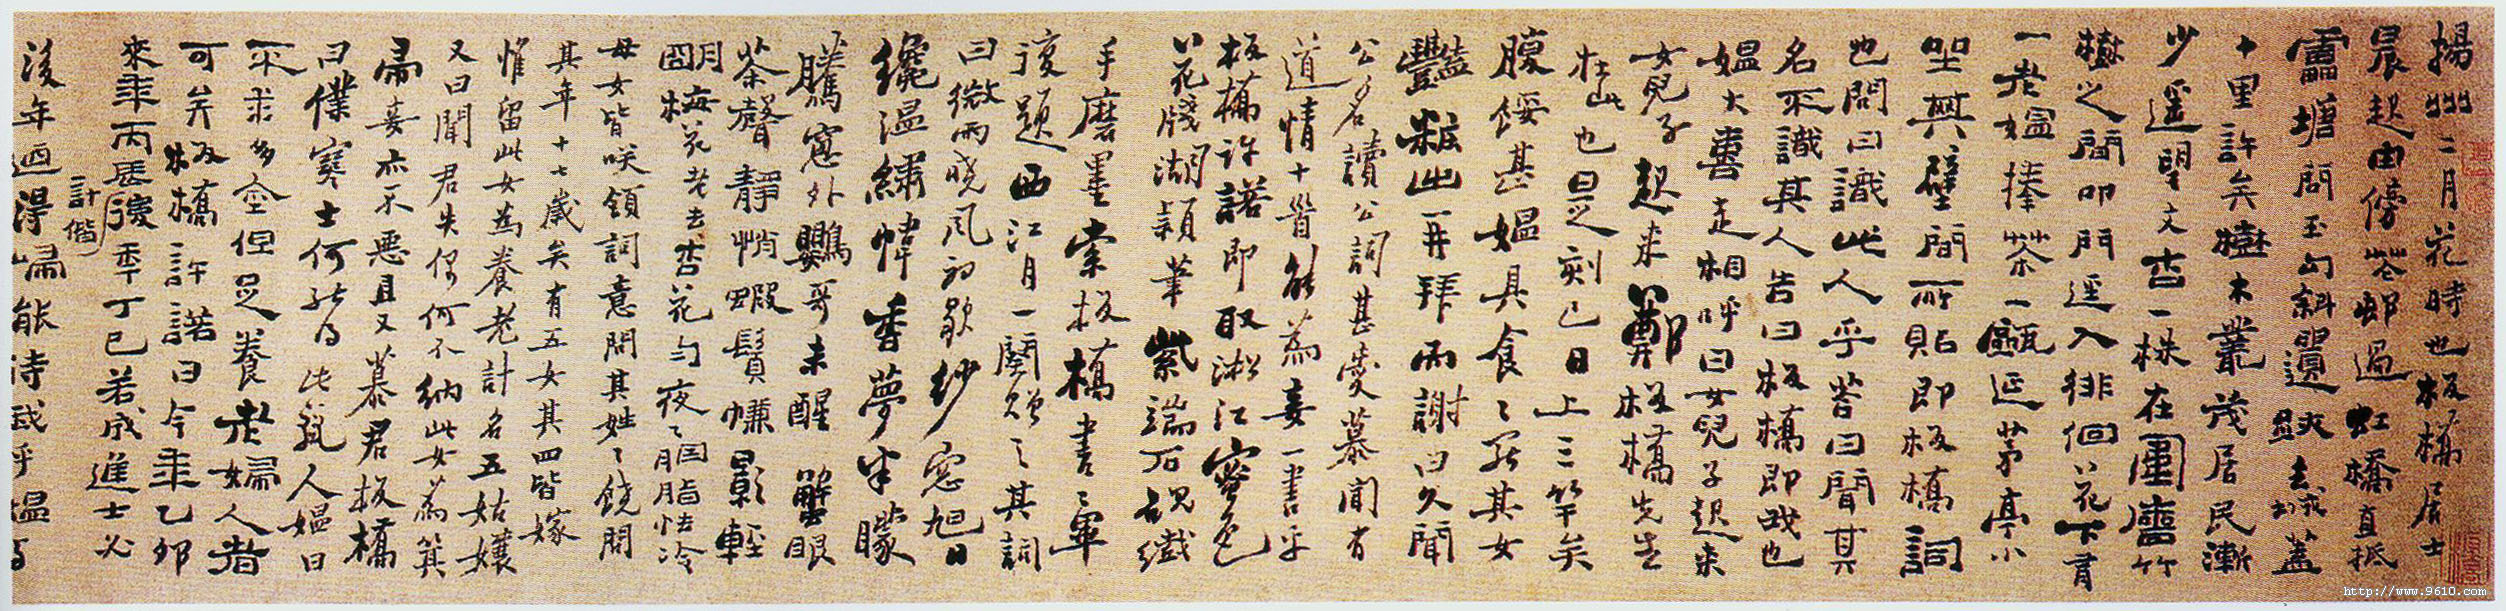 揚州二月花時也板橋居士
晨起由傍花邨過虹橋直抵
雷塘問玉勾斜遺跡去城蓋
十里許矣樹木叢茂居民漸
少遥望文杏一株在圍牆竹
樹之間叩門逕入徘徊花下有
一老媼捧茶一甌延茅亭小
坐其壁間所貼即板橋詞
也問曰識此人乎答曰聞其
名不識其人告曰板橋即我也
媼大喜走相呼曰女兒子起來
女兒子起來鄭板橋先生
在此也是刻已日上三竿矣
腹餒甚媼具食々罷其女
豔粧出再拜而謝曰久聞
公名讀公詞甚愛慕聞有
道情十首能為妾一書乎
板橋許諾即取淞江蜜色
花牋湖穎筆紫端石硯纖
手磨墨索板橋書々畢
復題西江月一闋贈之其詞
曰微雨曉風初歇紗窗旭日
纔溫繡幃香夢半朦
騰窗外鸚哥未醒 蟹眼
茶聲靜悄蝦鬚簾影輕
明梅花老去杏花勻夜々胭脂怯冷
母女皆咲領詞意問其姓々饒問
其年十七歲矣有五女其四皆嫁
惟留此女為養老計名五姑孃
又曰聞君失偶何不納此女為箕
帚妾亦不惡且又慕君板橋
曰僕寒士何能得此麗人媼曰
不求多金但足養老婦人者
可矣板橋許諾曰今年乙卯
來年丙辰計偕後年丁巳若成進士必
後年迺得歸能待我乎媼
http://www.9610.com